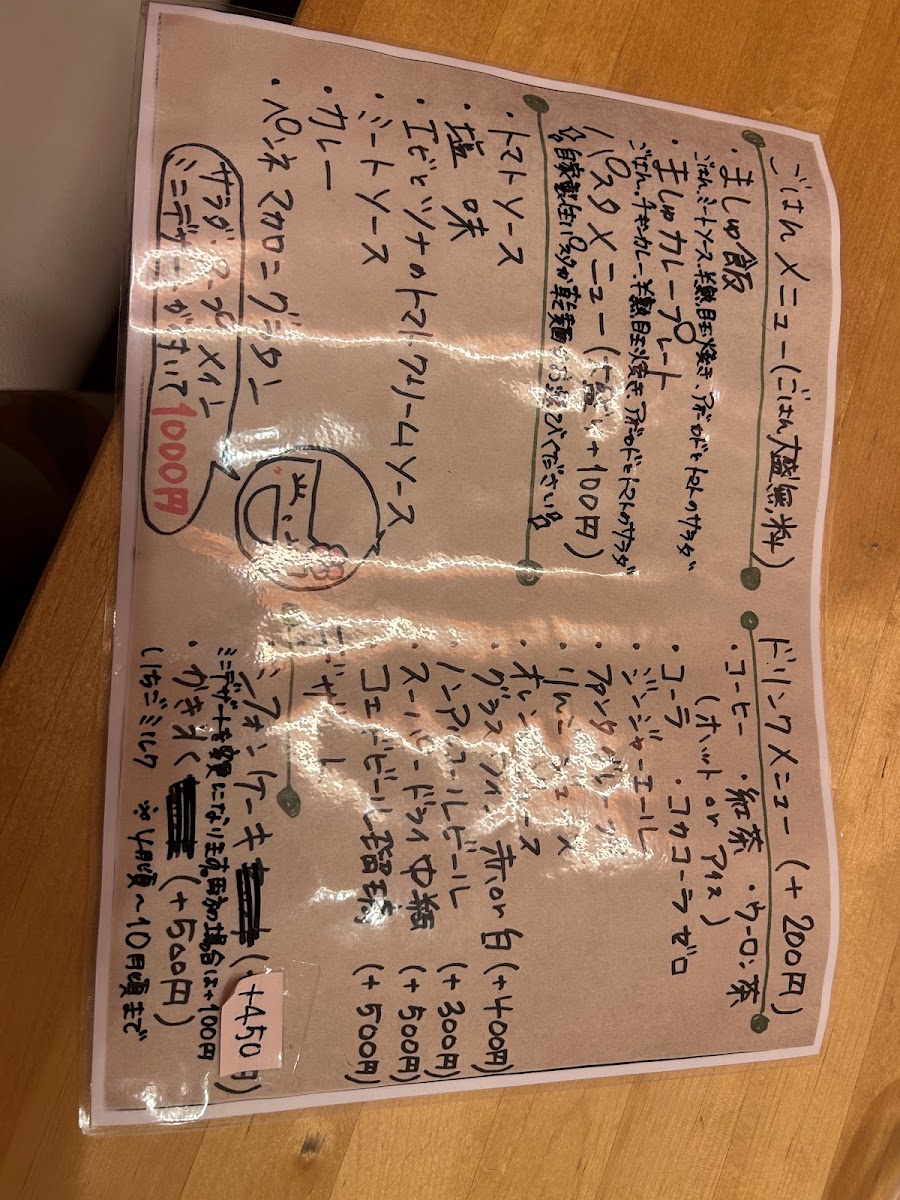 ごはんメニュー(ごはん大盛無料)
・ましゅ飯
ごはん、ミートソース、半熟目玉焼き、アボカドとトマトのサラダ
・ましゅカレープレート
ごはん、チキンカレー、半熟目玉焼き、アボカドとトマトのサラダ
パスタメニュー(大盛り+100円)
自家製生パスタか乾麺かお選びください
・トマトソース
・塩味
・エビとツナのトマトクリームソース
・ミートソース
・カレー
・ペンネマカロニグラタン
サラダ・スープ・メイン
ミニデザートがついて1000円
ドリンクメニュー(+200円)
・コーヒー ・紅茶 ・ウーロン茶
(ホット or アイス)
・コーラ ・コカコーラゼロ
・ジンジャーエール
・ファンタグレープ
・りんごジュース
・オレンジジュース
・グラスワイン 赤or白(+400円)
・ノンアルコールビール (+300円)
・スーパードライ中瓶 (+500円)
・コエドビール瑠璃 (+500円)
デザート
シフォンケーキ (+450円)
ミニデザートを変更になります 追加の場合は+100円
・かき氷 (+500円)
いちごミルク ※4月頃〜10月頃まで